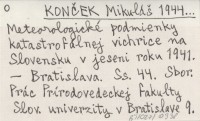 O KONČEK Mikuláš 1944...
Meteorologické podmienky
katastrofálnej víchrice na
Slovensku v jeseni roku 1941.
— Bratislava. Ss. 44. Sbor.
Prác Prírodovedeckej Fakulty
Slov. univerzity v Bratislave 9.